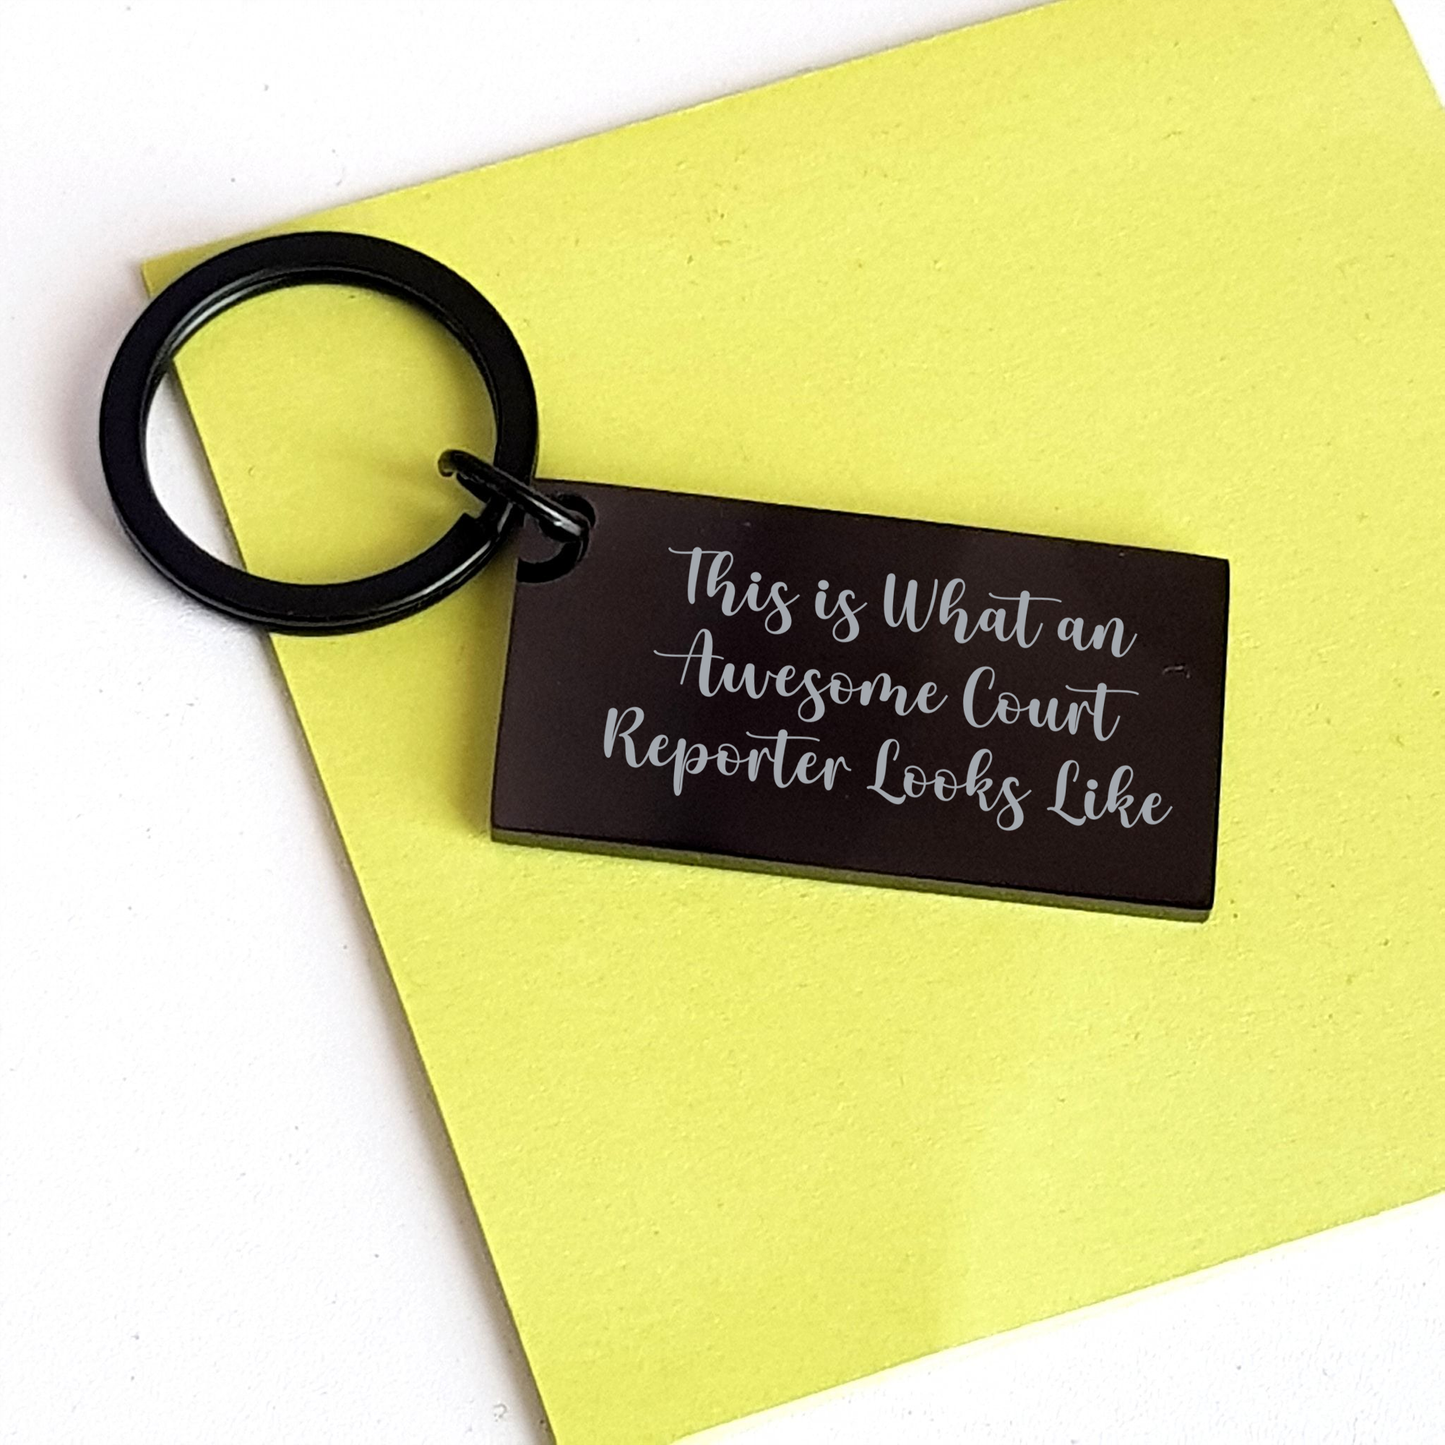 This is What an
Awesome Court
Reporter Looks Like